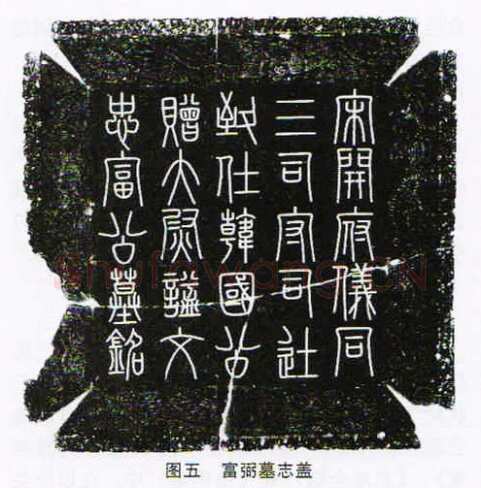 宋開府儀同
三司守司徒
致仕韓國公
贈大尉謚文
忠富公墓銘
图五 富弼墓志盖